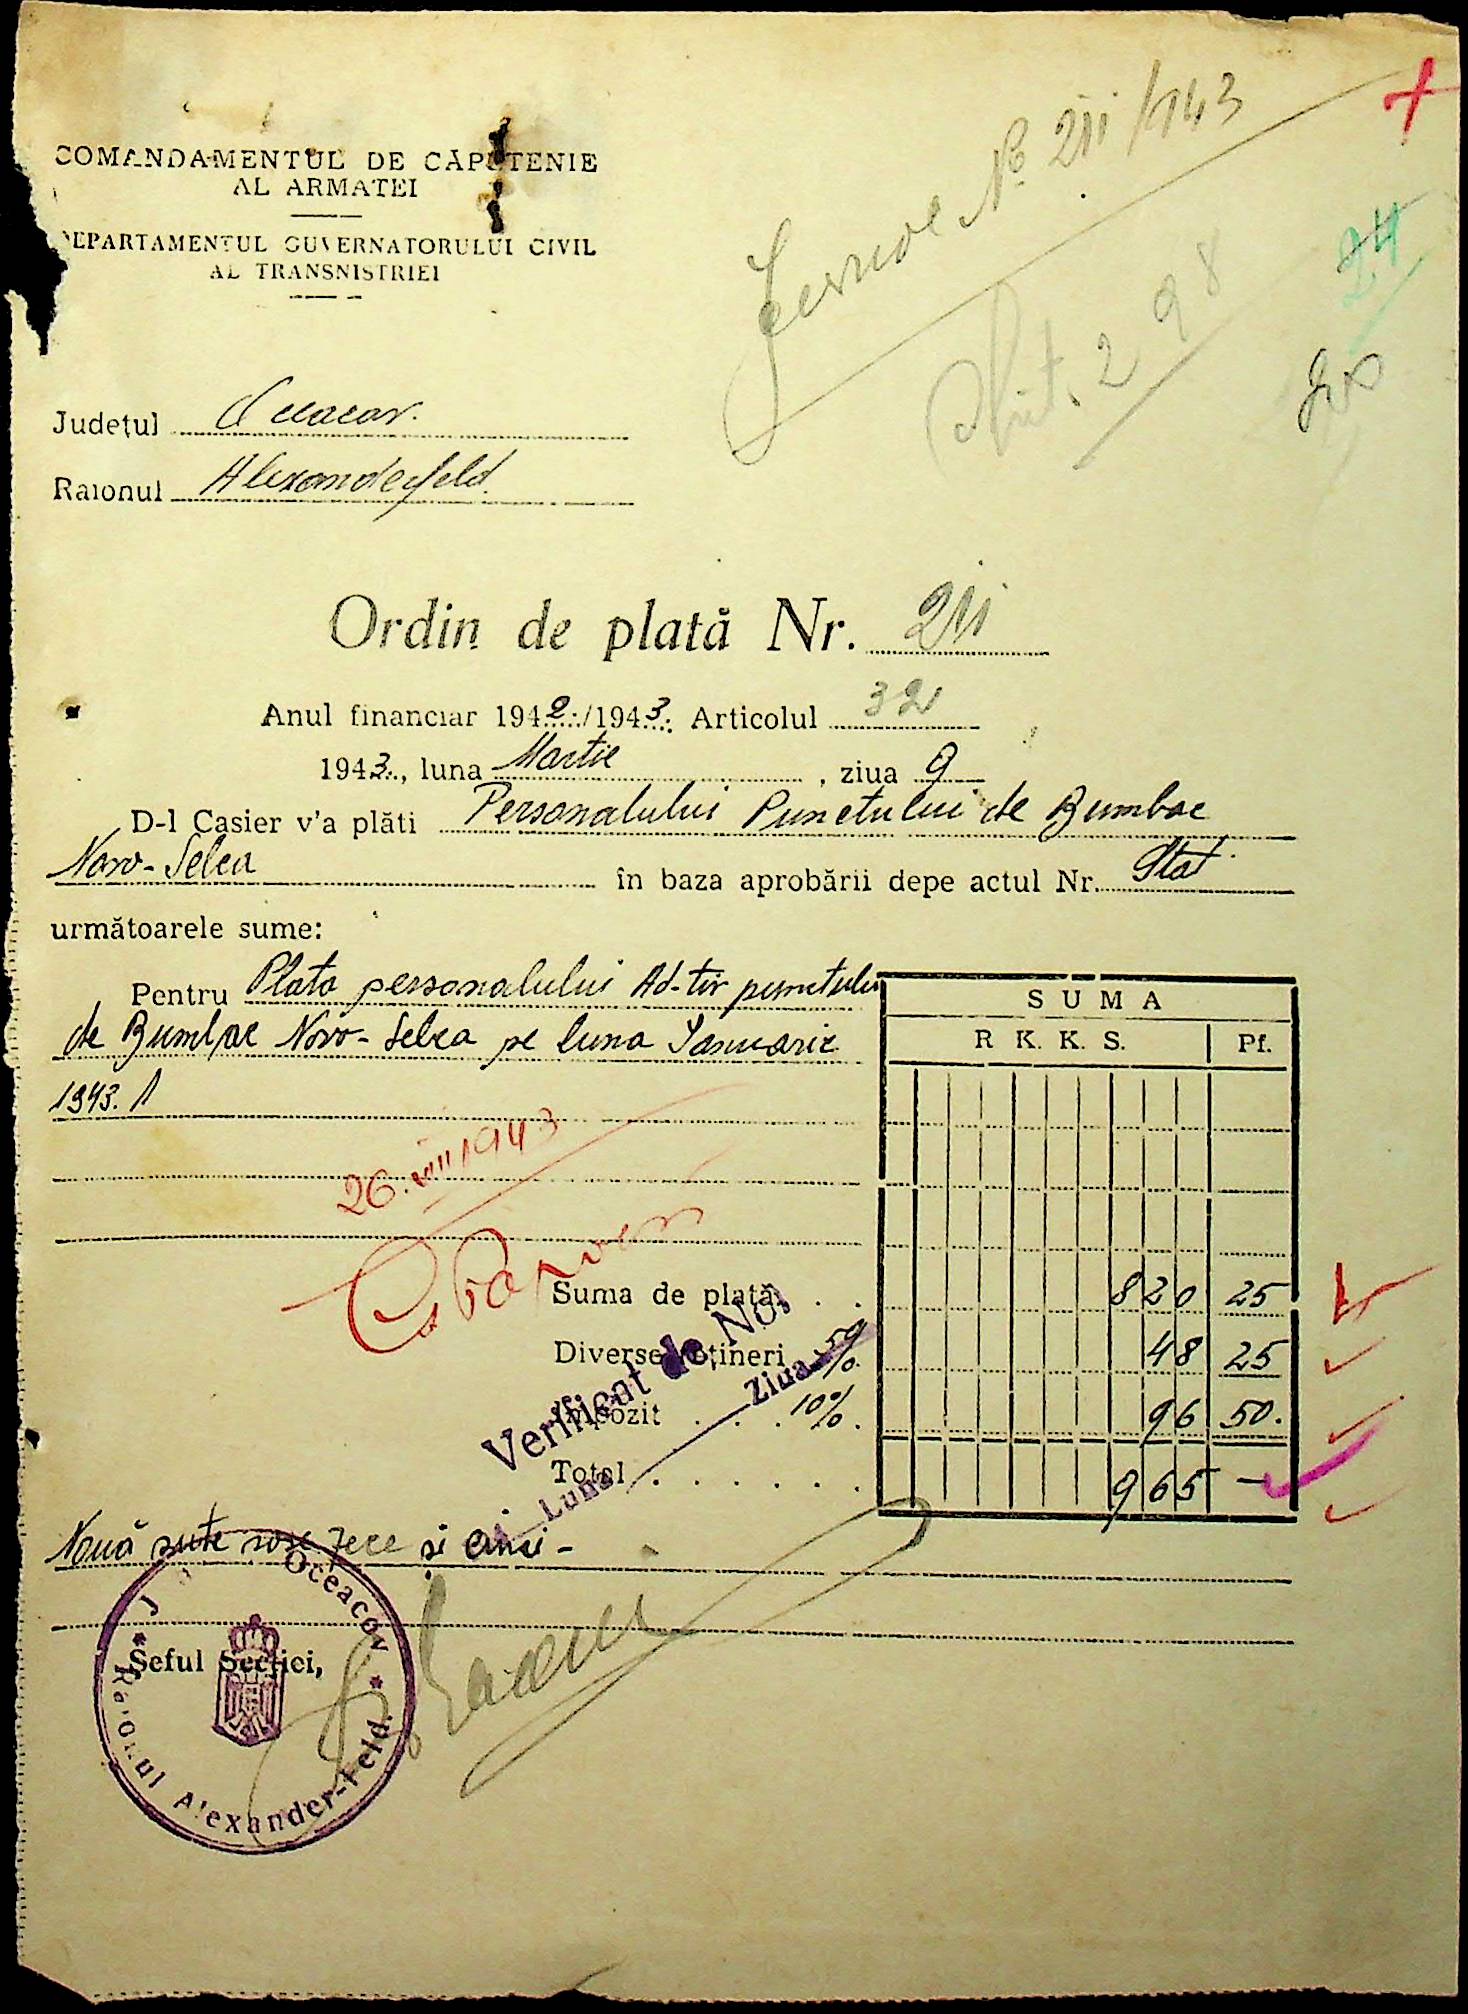 COMANDAMENTUL DE CĂPETENIE
AL ARMATEI
DEPARTAMENTUL GUVERNATORULUI CIVIL
AL TRANSNISTRIEI
No 211/943
298
24
Județul Oceacov.
Raionul Alexanderfeld.
Ordin de plată Nr. 211
Anul financiar 1942/1943. Articolul 32
1943., luna Martie, ziua 9
D-l Casier v'a plăti Personalului Punctului de Bumbac
Novo-Selca în baza aprobării depe actul Nr. Stat
următoarele sume:
Pentru Plata personalului Ad-tiv punctului
de Bumbac Novo-Selca pe luna Ianuarie
1943.
SUMA
R K. K. S. Pf.
26.VIII 1943
Suma de plată . . 820 25
Diverse rețineri 5% 48 25
Impozit . . . 10%. 96 50.
Total . . . . . . 965 —
Verificat de Noi
Luna Ziua
Nouă sute șase zece și cinci -
Șeful Secției,
J Oceacov * Raionul Alexander-Feld. *